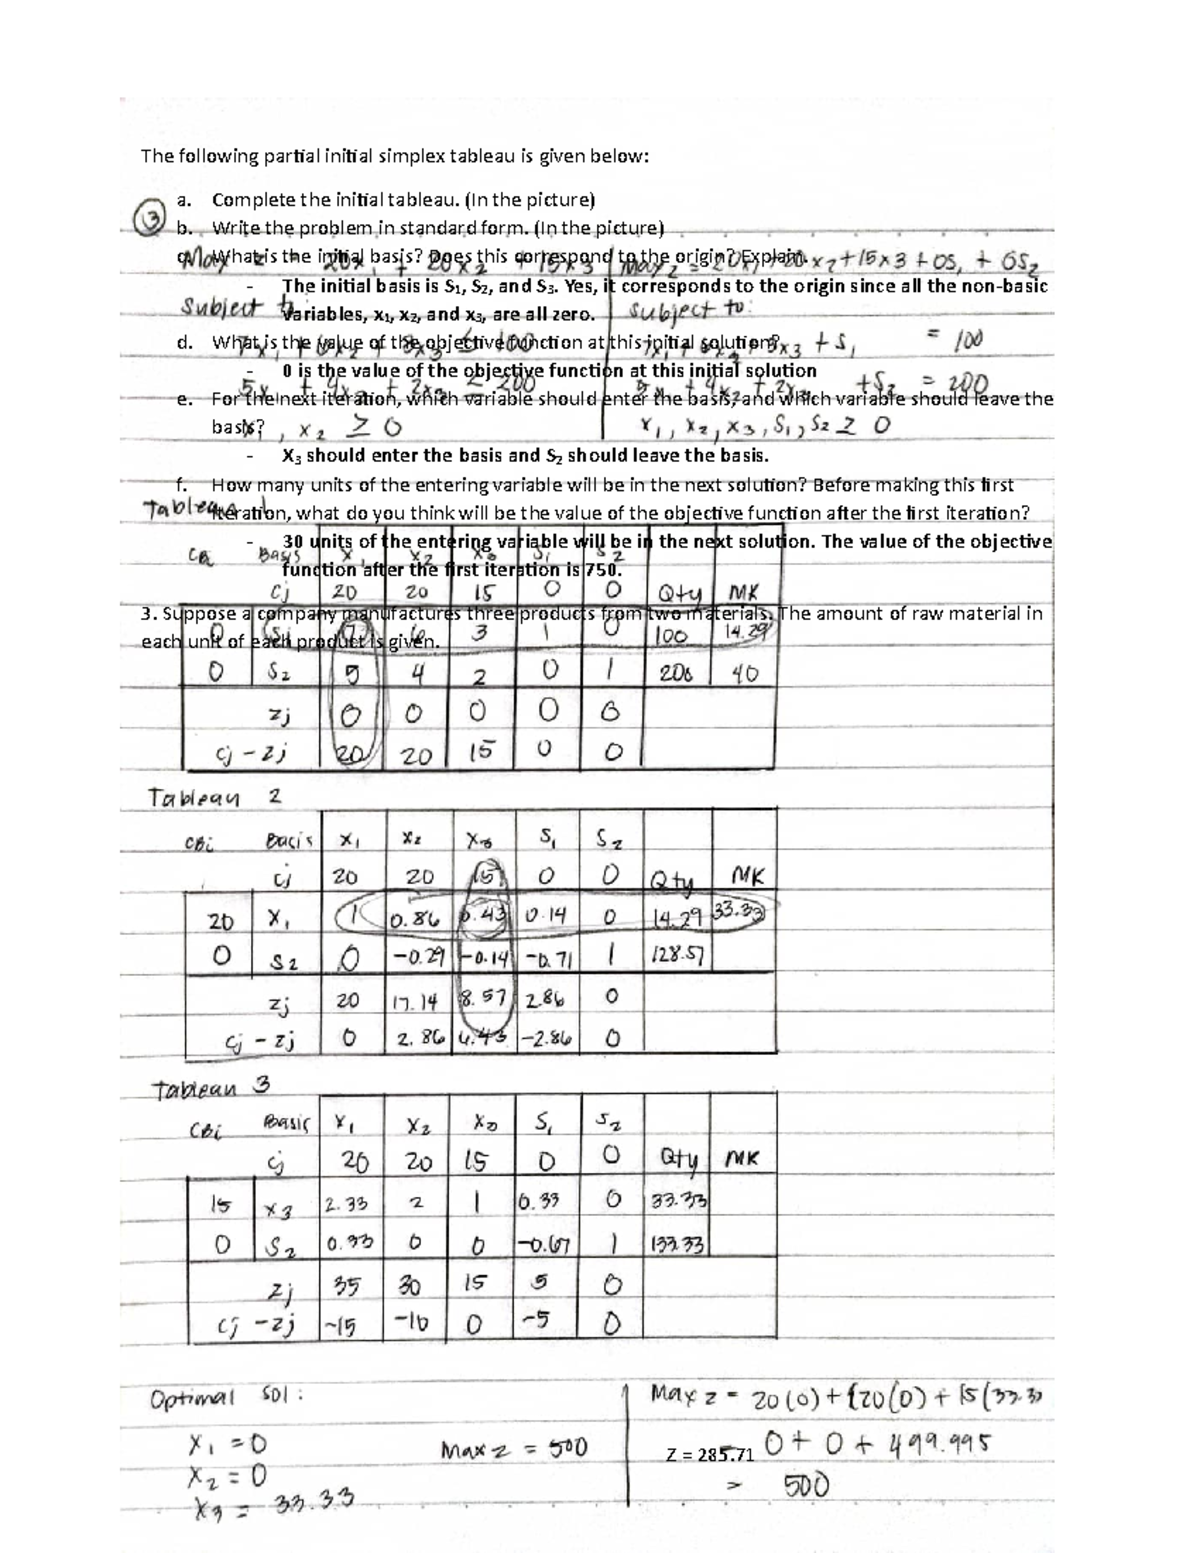 The following partial initial simplex tableau is given below:
a. Complete the initial tableau. (In the picture)
③ b. Write the problem in standard form. (In the picture)
c. What is the initial basis? Does this correspond to the origin? Explain.
Max z = 20x₁ + 20x₂ + 15x₃ Max z = 20x₁ + 20x₂ + 15x₃ + 0S₁ + 0S₂
- The initial basis is S₁, S₂, and S₃. Yes, it corresponds to the origin since all the non-basic
Subject to: subject to:
variables, x₁, x₂, and x₃, are all zero.
d. What is the value of the objective function at this initial solution?
7x₁ + 6x₂ + 3x₃ ≤ 100 7x₁ + 6x₂ + 3x₃ + S₁ = 100
- 0 is the value of the objective function at this initial solution
5x₁ + 4x₂ + 2x₃ ≤ 200 5x₁ + 4x₂ + 2x₃ + S₂ = 200
e. For the next iteration, which variable should enter the basis, and which variable should leave the
basis?
, x₂ ≥ 0 x₁, x₂, x₃, S₁, S₂ ≥ 0
- X₃ should enter the basis and S₂ should leave the basis.
f. How many units of the entering variable will be in the next solution? Before making this first
iteration, what do you think will be the value of the objective function after the first iteration?
Tableau 1
- 30 units of the entering variable will be in the next solution. The value of the objective
function after the first iteration is 750.
CBi Basis x₁ x₂ x₃ S₁ S₂
Cj 20 20 15 0 0 Qty MK
3. Suppose a company manufactures three products from two materials. The amount of raw material in
each unit of each product is given.
0 S₁ 7 6 3 1 0 100 14.29
0 S₂ 5 4 2 0 1 200 40
Zj 0 0 0 0 0
Cj - Zj 20 20 15 0 0
Tableau 2
CBi Basis x₁ x₂ x₃ S₁ S₂
Cj 20 20 15 0 0 Qty MK
20 x₁ 1 0.86 0.43 0.14 0 14.29 33.33
0 S₂ 0 -0.29 -0.14 -0.71 1 128.57
Zj 20 17.14 8.57 2.86 0
Cj - Zj 0 2.86 6.43 -2.86 0
Tableau 3
CBi Basis x₁ x₂ x₃ S₁ S₂
Cj 20 20 15 0 0 Qty MK
15 x₃ 2.33 2 1 0.33 0 33.33
0 S₂ 0.33 0 0 -0.67 1 133.33
Zj 35 30 15 5 0
Cj - Zj -15 -10 0 -5 0
Optimal sol: Max z = 20(0) + (20(0) + 15(33.33
x₁ = 0 Max z = 500 Z = 285.71 0 + 0 + 499.995
x₂ = 0 = 500
x₃ = 33.33